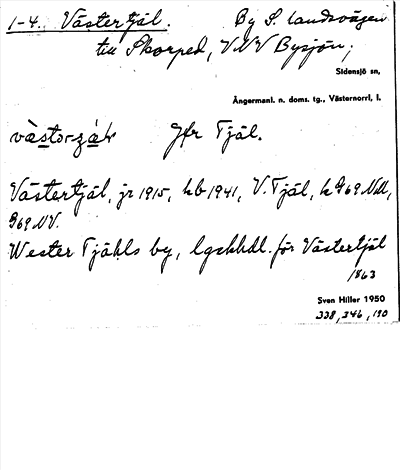 1-4. Västertjäl. By S. landsvägen
till Skorped, V.N.V Bysjön;
Sidensjö sn,
Ångermanl. n. doms. tg., Västernorrl. l.
Jfr Tjäl.
Västertjäl, jr 1915, kb 1941, V. Tjäl, k G69 NV,
G69 NV.
Wester Tjähls by, lgskhdl. för Västertjäl
1863
Sven Hiller 1950
338, 346, 190